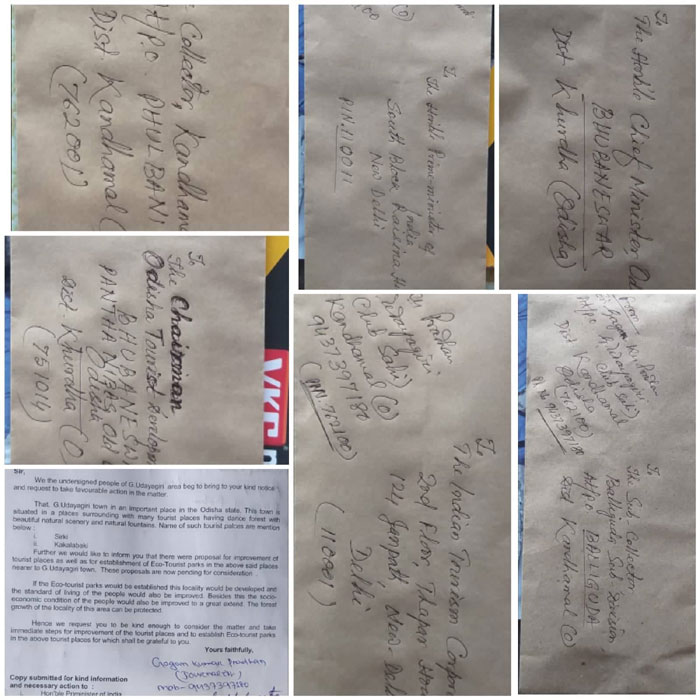 Collector, Kandham
At/P.O. PHULBANI
Dist. Kandhamal (
(762001)
To
The Hon'ble Prime minister of
India
South Block, Raisina H
New Delhi
PIN. 110011
To
The Hon'ble Chief Minister, Od
BHUBANESWAR
Dist Khurdha (Odisha)
To
The Chairman,
Odisha Tourist Develop
BHUBANESW
PANTHA NIBAS OLD
Odisha
Dist. Khurdha (O)
(751014)
VKC
Pradhan
Udayagiri
Club Sahi
Kandhamal (O)
9437397180
(PIN. 762100)
To
The Indian Tourism Corpor
2nd Floor, Thapar
124 Janpath, New-Delh
Delhi
(110001)
From
Gagan Ku. Pradhan
At/po G. Udayagiri
(Club Sahi)
Dist Kandhamal
Odisha
(762100)
9437397180
To
The Sub-Collector
Balliguda Sub-Division
At/p. BALLIGUDA
Dist Kandhamal (O)
Sir,
We the undersigned people of G.Udayagiri area beg to bring to your kind notice
and request to take favourable action in the matter.
That, G.Udayagiri town in an important place in the Odisha state. This town is
situated in a places surrounding with many tourist places having dance forest with
beautiful natural scenery and natural fountains. Name of such tourist palces are mention
below :
i. Sirki
ii. Kakalabaki
Further we would like to inform you that there were proposal for improvement of
tourist places as well as for establishment of Eco-Tourist parks in the above said places
nearer to G.Udayagiri town. These proposals are now pending for consideration.
If the Eco-tourist parks would be established this locality would be developed and
the standard of living of the people would also be improved. Besides this the socio-
economic condition of the people would also be improved to a great extend. The forest
growth of the locality of this area can be protected.
Hence we request you to be kind enough to consider the matter and take
immediate steps for improvement of the tourist places and to establish Eco-tourist parks
in the above tourist places for which shall be grateful to you.
Yours faithfully,
Gagan Kumar Pradhan
(Journalist)
Mob-9437397180
Copy submitted for kind information
and necessary action to :
Hon'ble Primiser of India